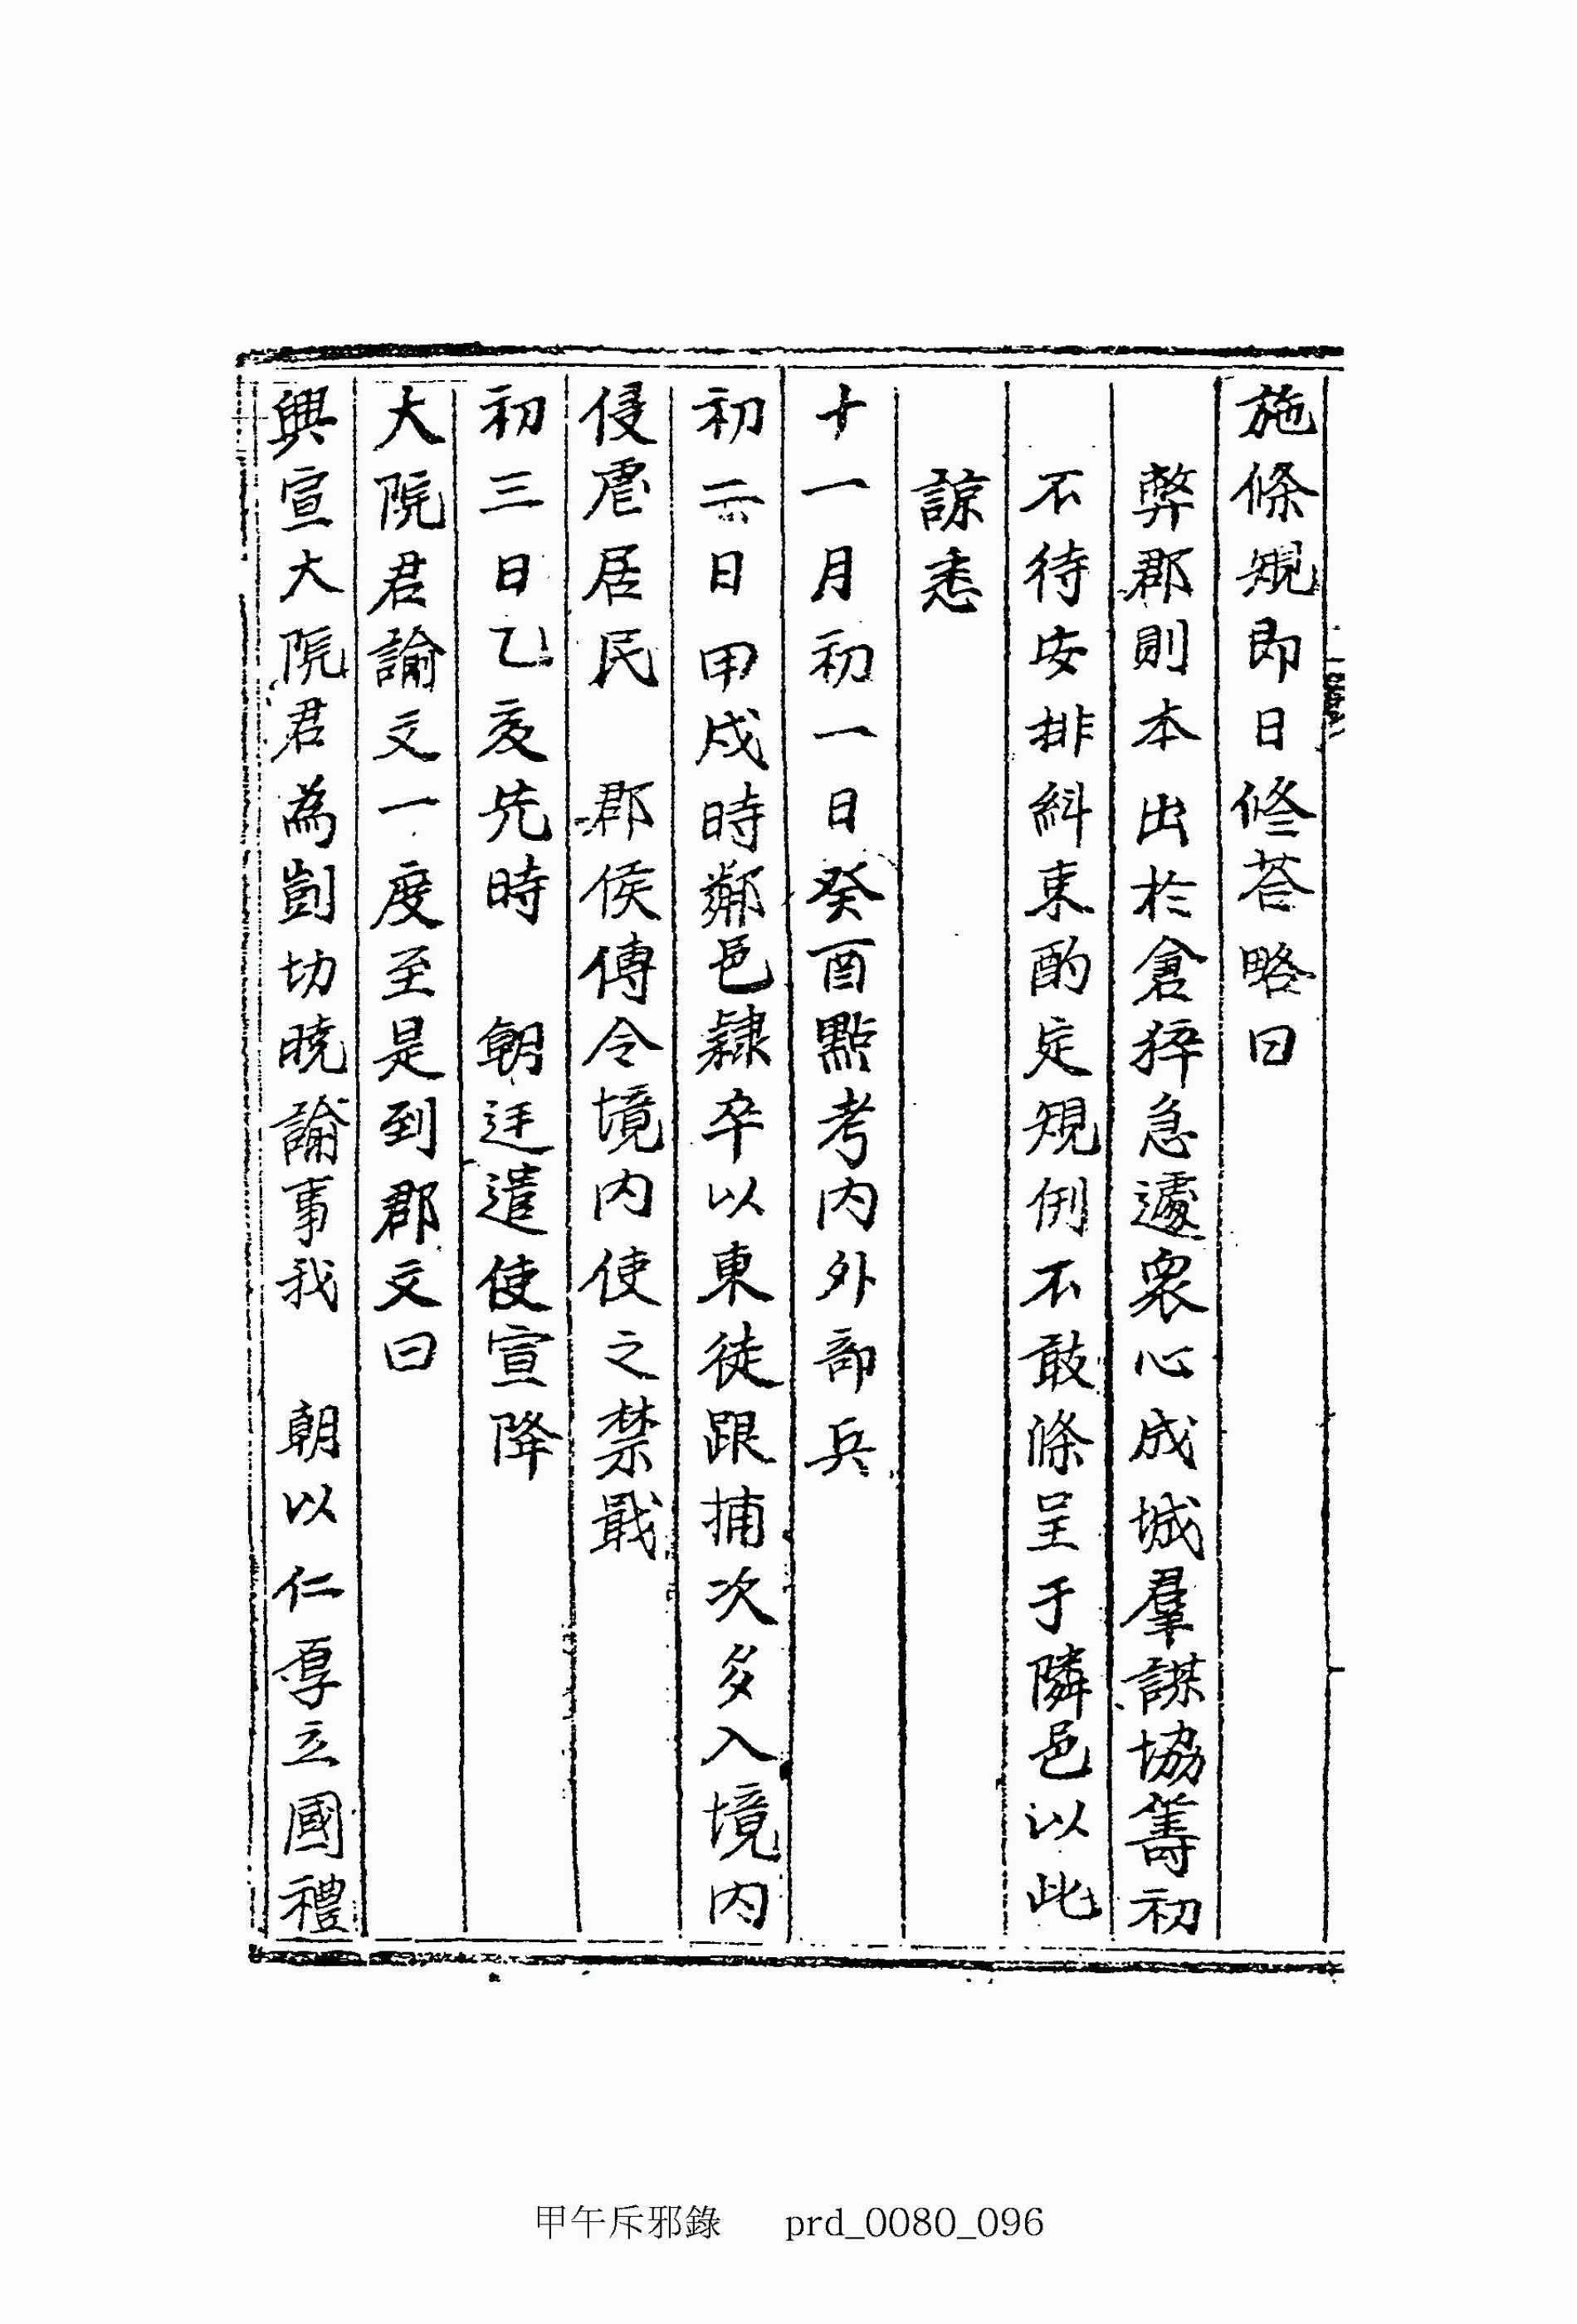 施條規即日修答略曰
弊郡則本出於倉猝急遽衆心成城羣謀協籌初
不待安排糾束酌定規例不敢條呈于隣邑以此
諒悉
十一月初一日癸酉點考內外部兵
初二日甲戌時鄰邑隸卒以東徒跟捕次多入境內
侵虐居民 郡侯傳令境內使之禁戢
初三日乙亥先時 朝廷遣使宣降
大院君諭文一度至是到郡文曰
興宣大院君為剴切曉諭事我 朝以仁厚立國禮
甲午斥邪錄 prd_0080_096